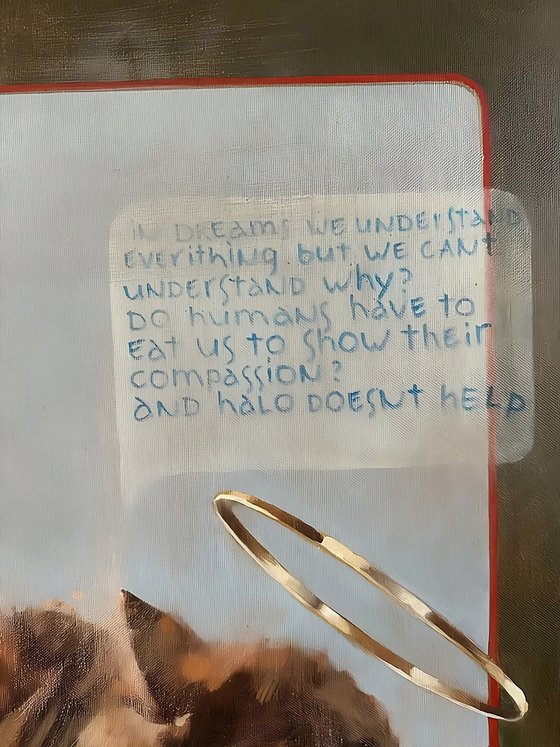 IN DREAMS WE UNDERSTAND
EVERITHING. bUt WE CANt
UNDERStAND Why?
DO humANS hAVE tO
EAt US tO ShOW thEir
COmpASSiON?
AND hALO DOESNt hELp